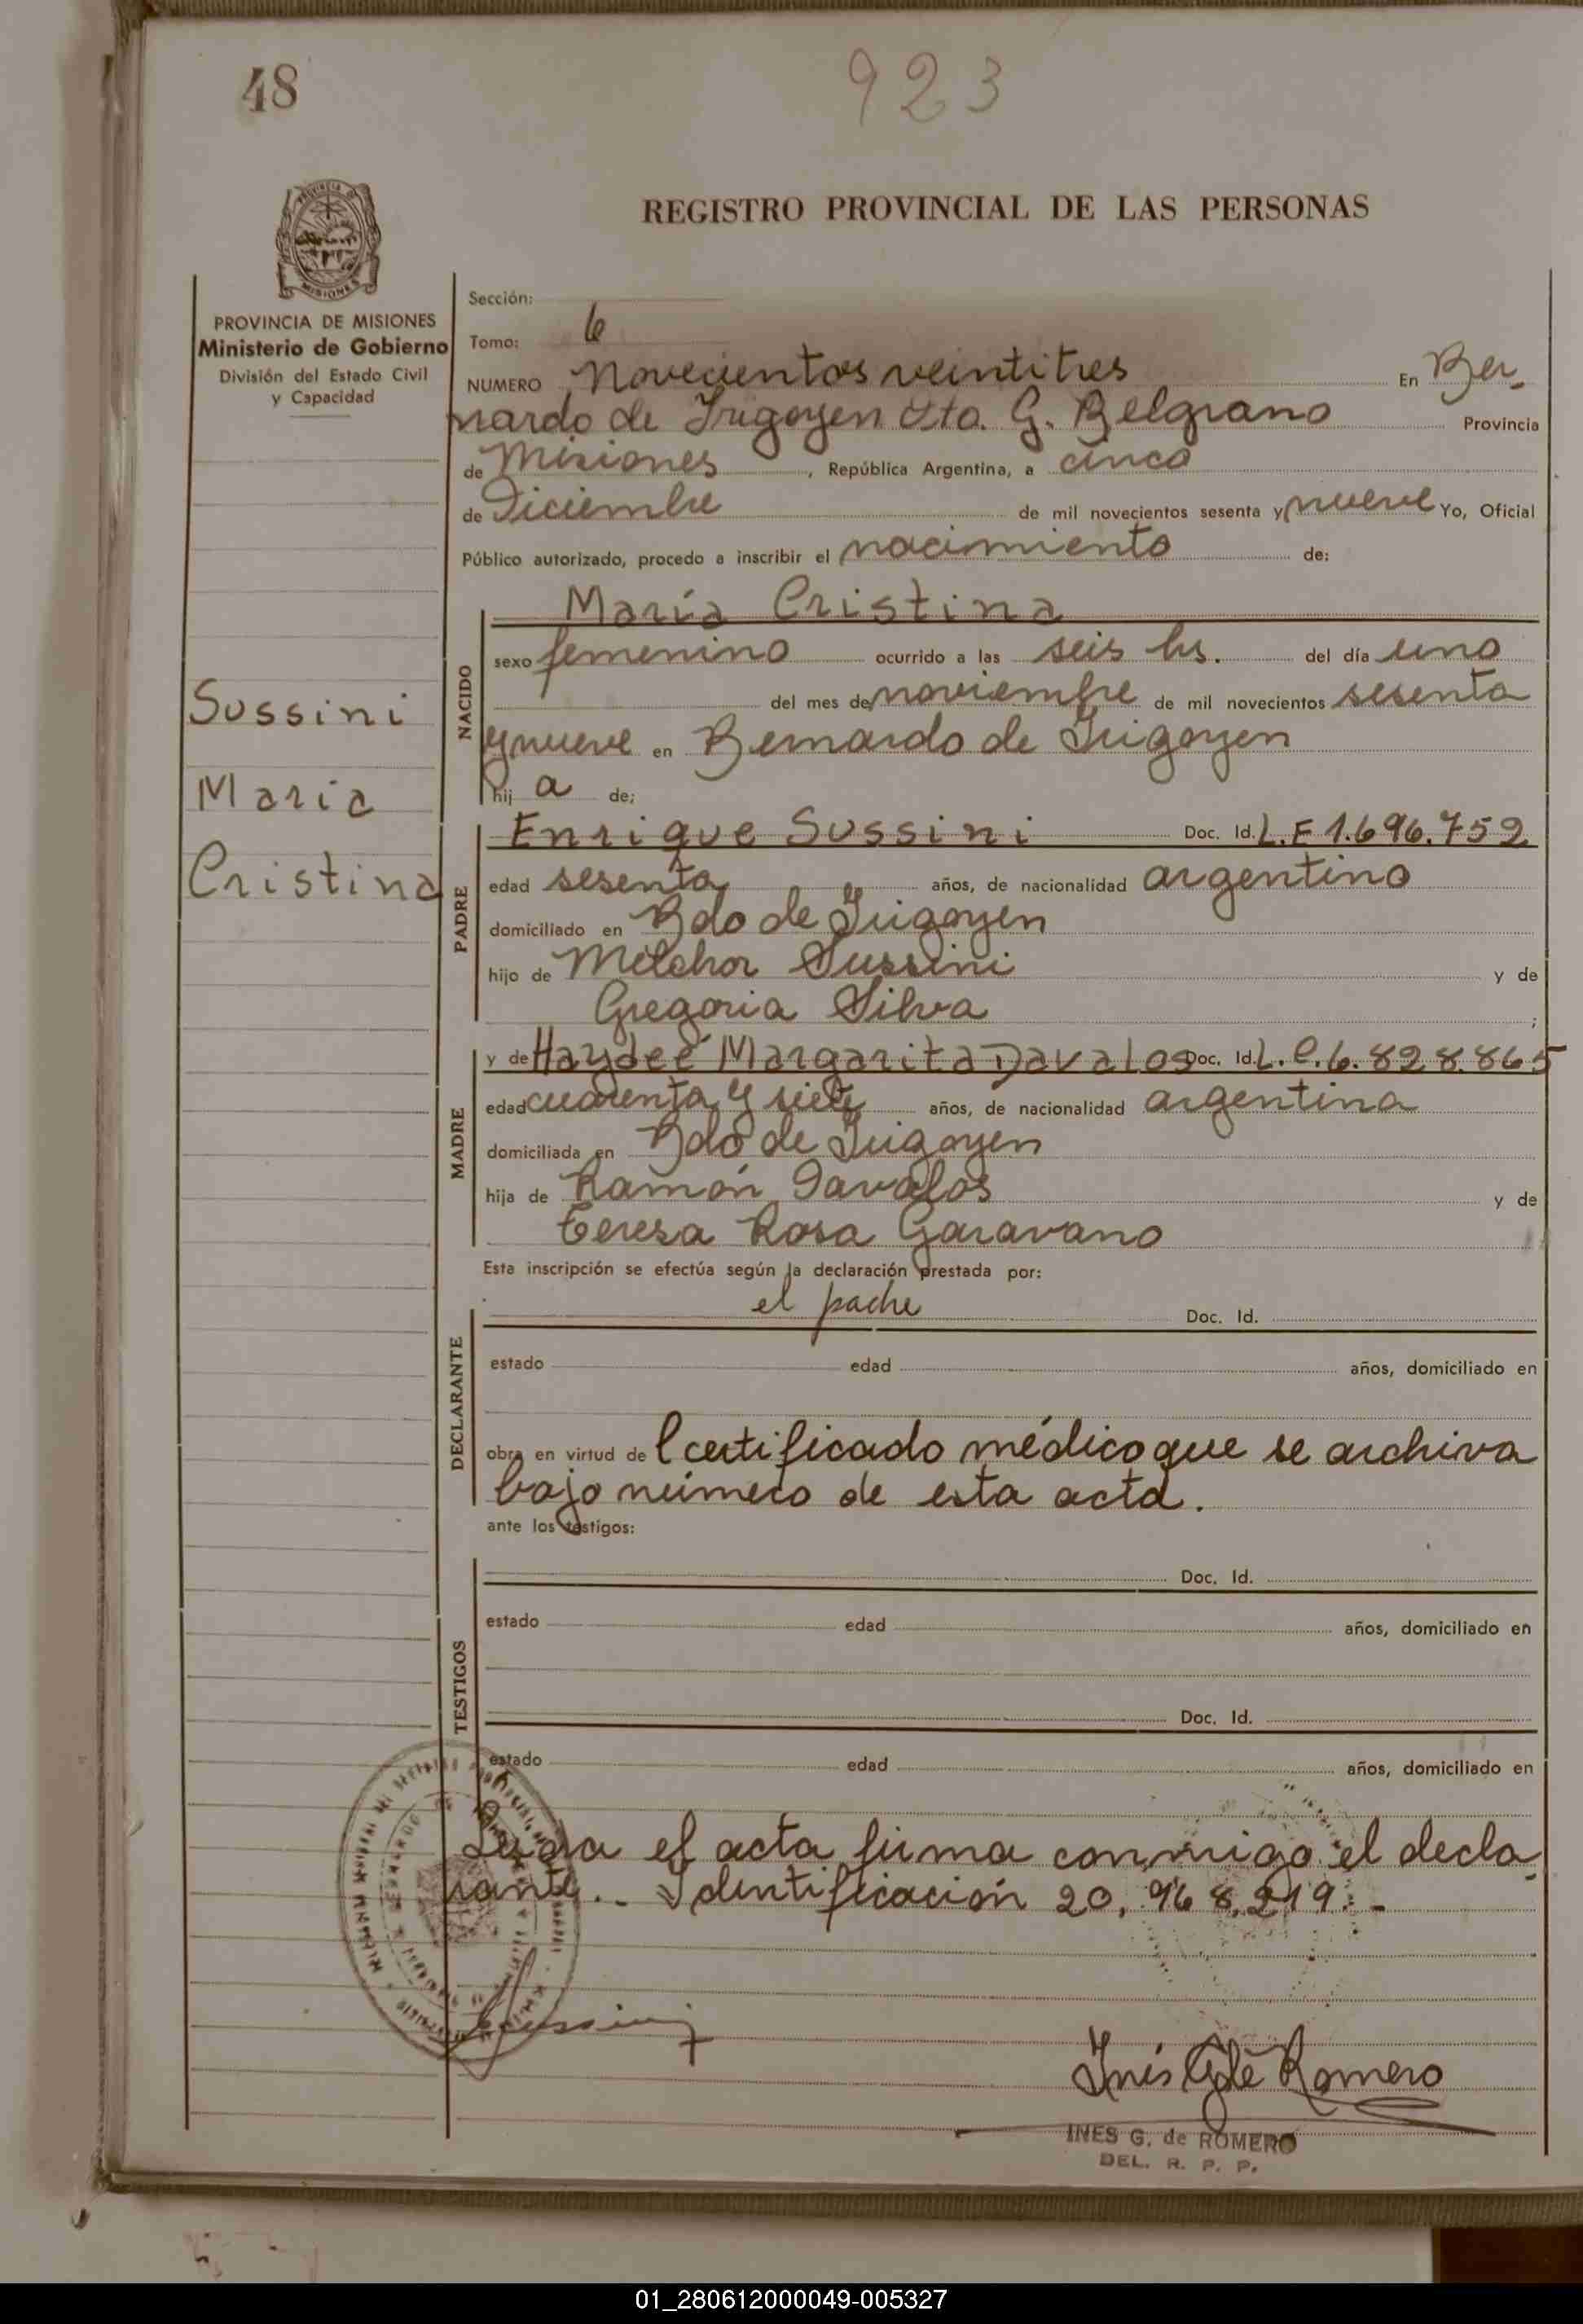 48
923
PROVINCIA DE
MISIONES
REGISTRO PROVINCIAL DE LAS PERSONAS
PROVINCIA DE MISIONES
Ministerio de Gobierno
División del Estado Civil
y Capacidad
Sussini
Maria
Cristina
Sección:
Tomo: 6
NUMERO Novecientos veintitres En Ber-
nardo de Irigoyen Dto. G. Belgrano Provincia
de Misiones, República Argentina, a cinco
de Diciembre de mil novecientos sesenta y nueve Yo, Oficial
Público autorizado, procedo a inscribir el nacimiento de:
NACIDO
María Cristina
sexo femenino ocurrido a las seis hs. del día uno
del mes de noviembre de mil novecientos sesenta
y nueve en Bernardo de Irigoyen
hij a de:
PADRE
Enrique Sussini Doc. Id. L.E 1.696.752
edad sesenta años, de nacionalidad argentino
domiciliado en Bdo de Irigoyen
hijo de Melchor Sussini y de
Gregoria Silva ;
MADRE
y de Haydeé Margarita Davalos Doc. Id. L.C. 6.828.865
edad cuarenta y siete años, de nacionalidad argentina
domiciliada en Bdo de Irigoyen
hija de Ramón Davalos y de
Teresa Rosa Garavano
Esta inscripción se efectúa según la declaración prestada por:
DECLARANTE
el padre Doc. Id.
estado edad años, domiciliado en
obra en virtud de l certificado médico que se archiva
bajo número de esta acta.
ante los testigos:
TESTIGOS
Doc. Id.
estado edad años, domiciliado en
Doc. Id.
estado edad años, domiciliado en
Leida el acta firma conmigo el decla-
rante.. Identificación 20.968.219.-
Sussini
Inés G de Romero
INES G. de ROMERO
DEL. R. P. P.
01_280612000049-005327